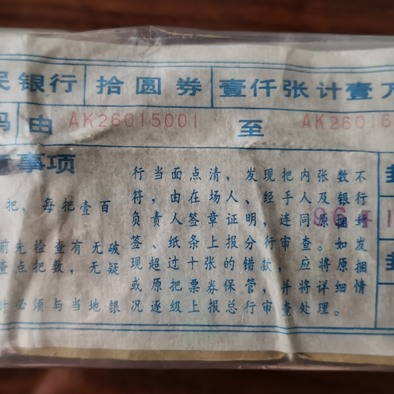 民银行 拾圆券 壹仟张计壹万
码 由 AK26015001 至 AK26016
事项
行当面点清，发现把内张数不
把，每把壹百 符，由在场人、经手人及银行
负责人签章证明，连同原捆封
前先检查有无破 签、纸条上报分行审查。如发
查点把数，无疑 现超过十张的错款，应将原捆
或原把票券保管，并将详细情
必须与当地银 况逐级上报总行审查处理。
96 年 1